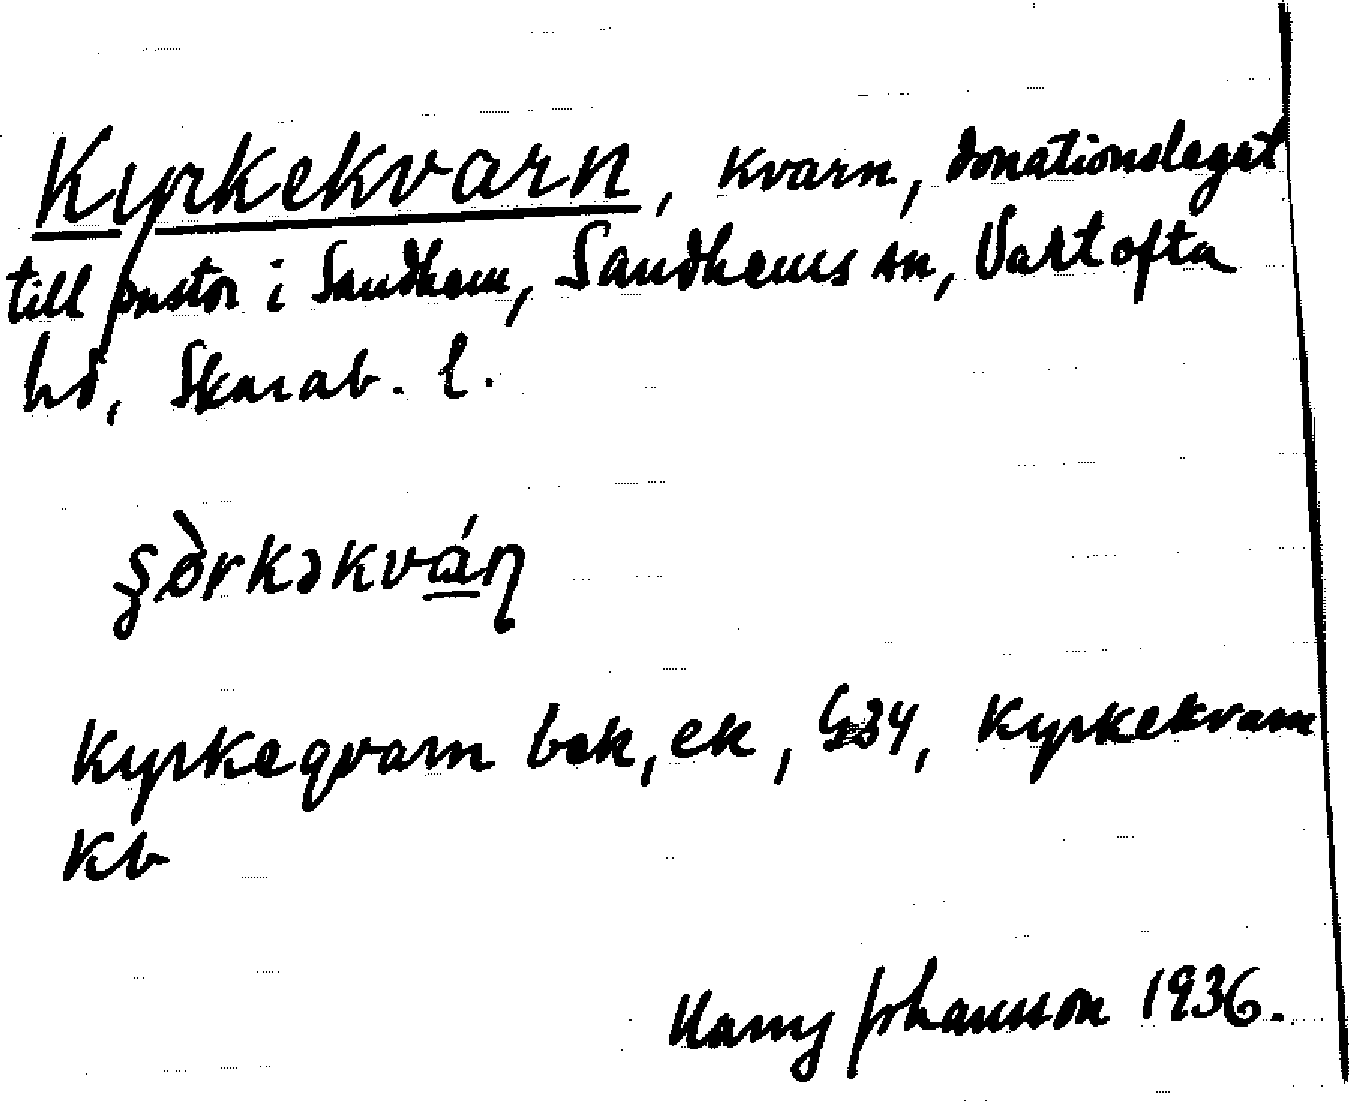 Kyrkekvarn, kvarn, donationslegat
till pastor i Sandhem, Sandhems sn, Vartofta
hd, Skarab. l.
kyrkeqvarn bek, ek, G34, Kyrkekvarn
kb
Harry Johansson 1936.